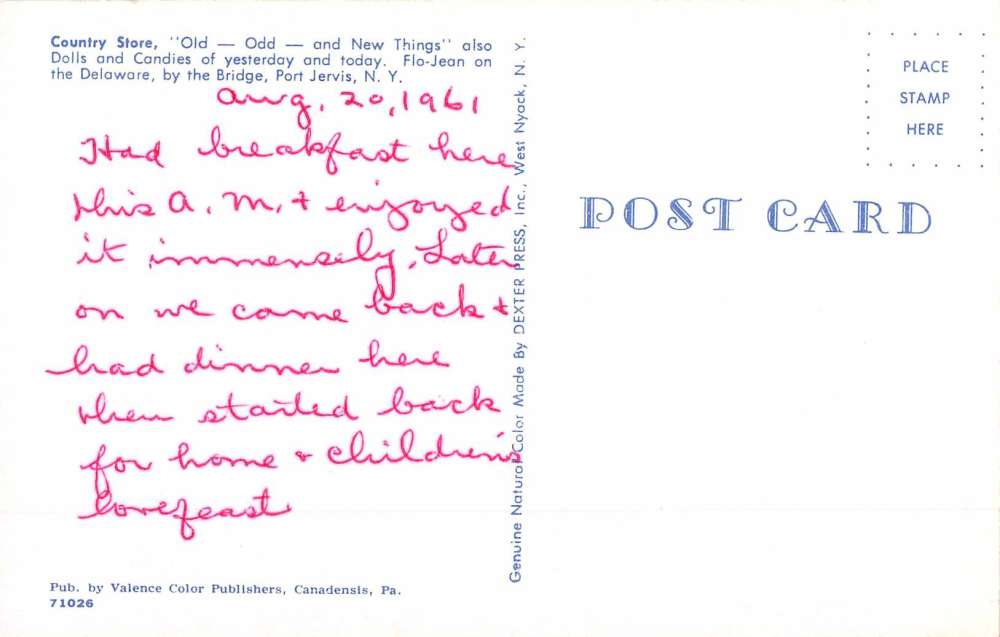 Country Store, "Old — Odd — and New Things" also
Dolls and Candies of yesterday and today. Flo-Jean on
the Delaware, by the Bridge, Port Jervis, N. Y.
Aug, 20, 1961
Had breakfast here
this A. M. + enjoyed
it immensely. Later
on we came back +
had dinner here
then started back
for home + children's
lovefeast
Pub. by Valence Color Publishers, Canadensis, Pa.
71026
Genuine Natural Color Made By DEXTER PRESS, Inc., West Nyack, N. Y.
PLACE
STAMP
HERE
POST CARD